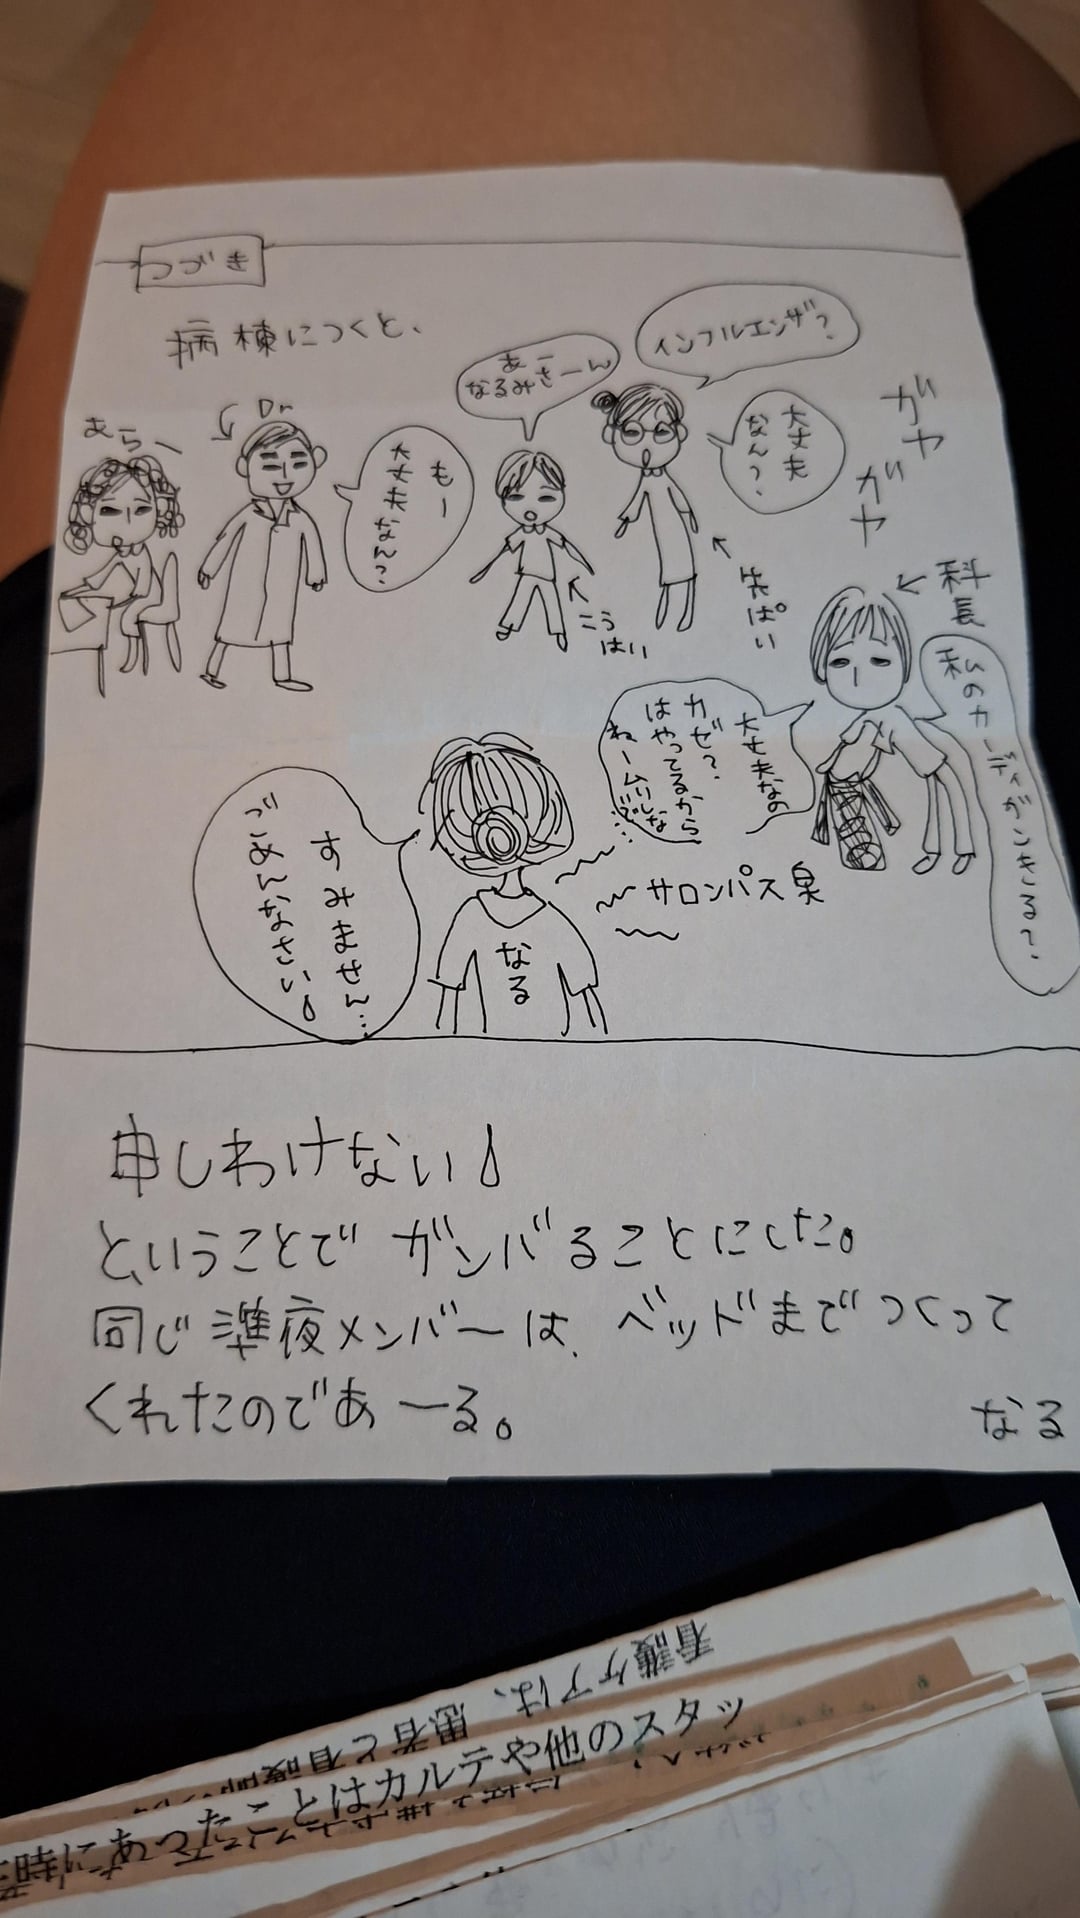 つづき
病棟につくと、
インフルエンザ?
大丈夫
なん?
あー
なるみさーん
ガヤ
ガヤ
Dr
あらー
もー
大丈夫なん?
こう
はい
先ぱい
科長
私のカーディガンきる?
大丈夫なの
カゼ?
はやってるから
ねームリしな
いで…
サロンパス臭
すみません…
ごめんなさい
なる
申しわけない
ということで ガンバることにした。
同じ準夜メンバーは、ベッドまでつくって
くれたのであーる。
なる
看護ケアは、患者と看護師
時にあったことはカルテや他のスタッ